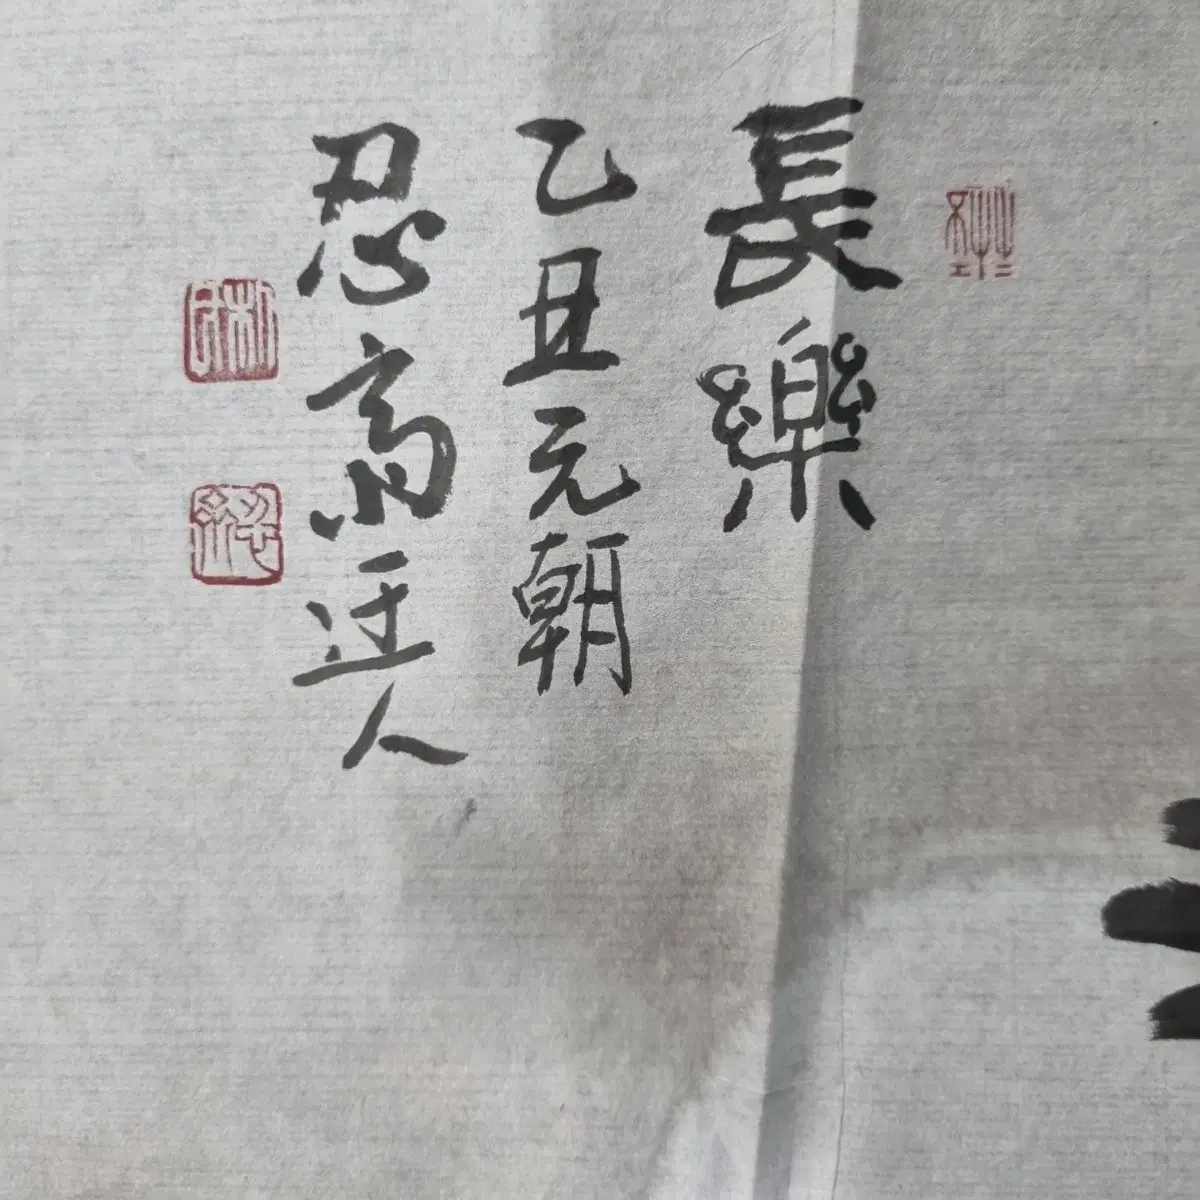 長樂
乙丑元朝
忍高迂人